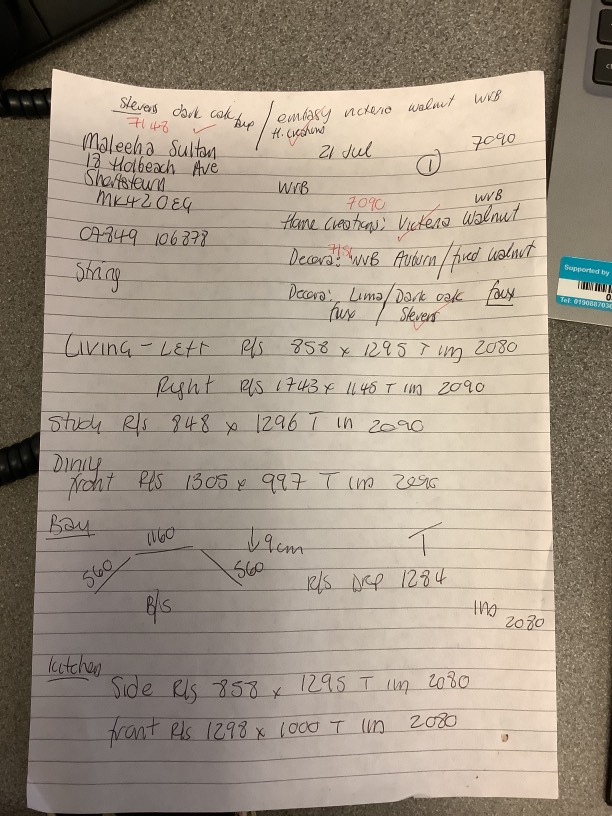 Stevens dark oak faux / embasy victoria walnut WVB
7148 ✓ H. Creations
Maleeha Sultan 21 Jul ① 7090
13 Holbeach Ave
Shortstown WVB
MK42 0EG 7090 WVB
Home Creations: Victoria Walnut
07849 106878
Decora: WVB Auburn / fired walnut
String
Decora: Lima / Dark oak faux
faux / Stevens
Living - Left R/S 858 x 1295 T 1m 2080
Right R/S 1743 x 1145 T 1m 2090
Study R/S 848 x 1296 T 1m 2090
Dining
front R/S 1305 x 997 T 1m
Bay 1160 ↓ 9cm T
560 560 R/S Drop 1284
B/S 1m
2080
Kitchen
Side R/S 858 x 1295 T 1m 2080
front R/S 1298 x 1000 T 1m 2080
Supported by